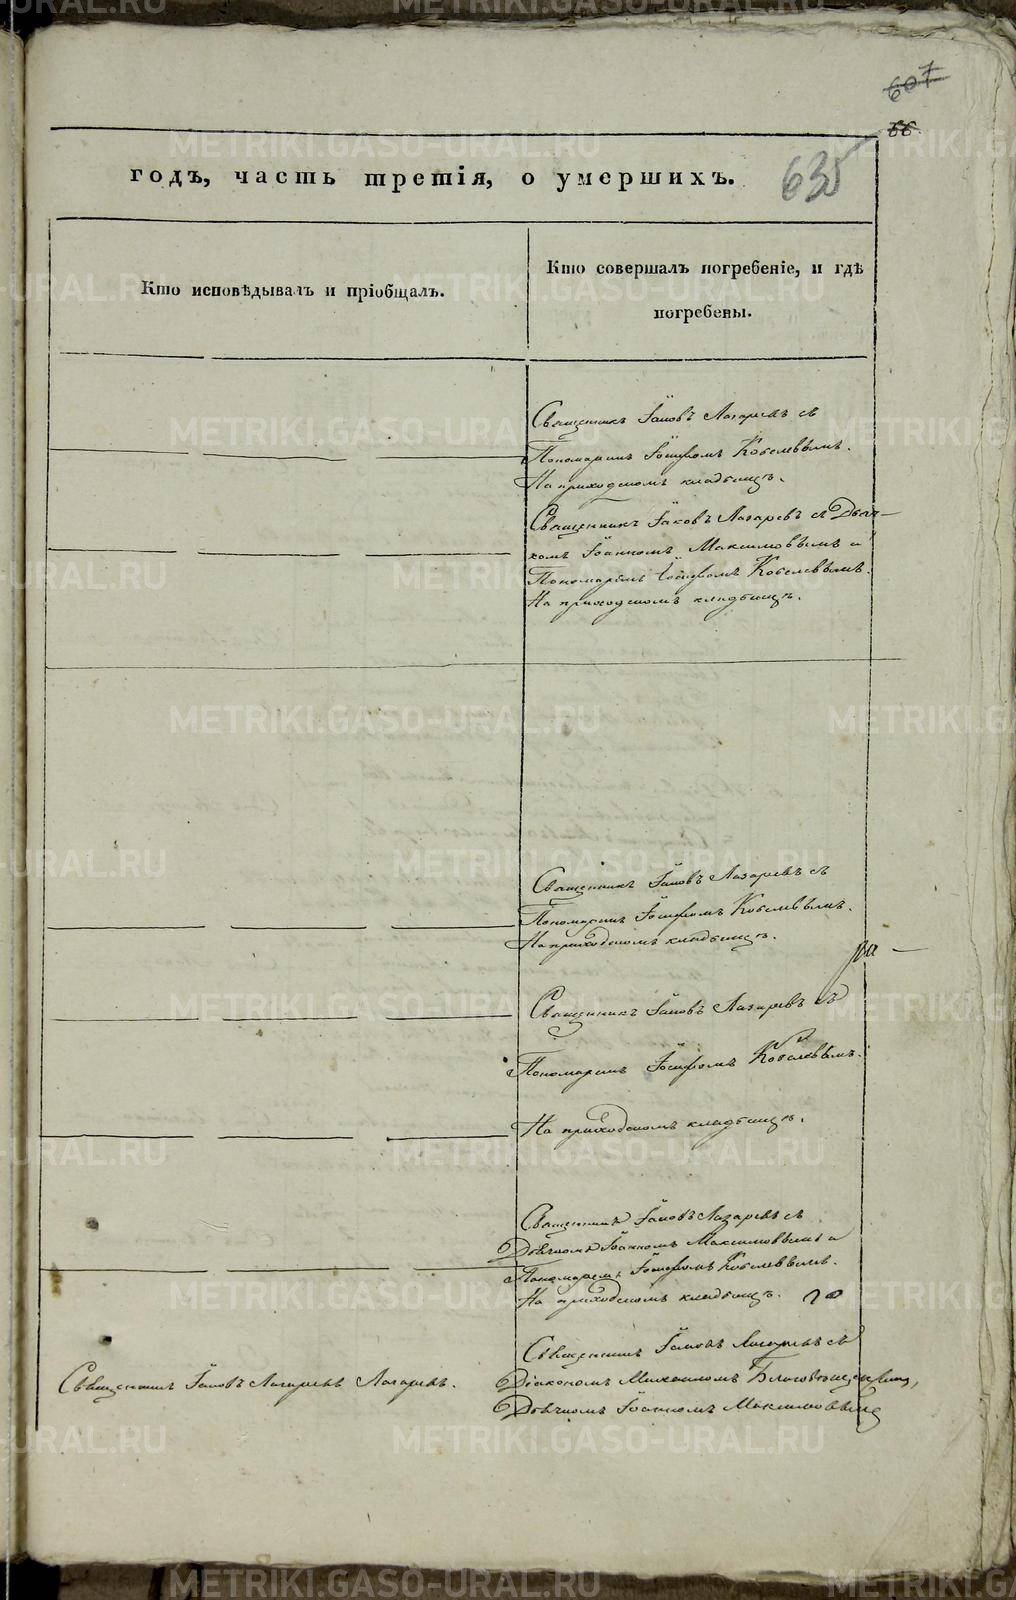 607
66
635
годъ, часть третія, о умершихъ.
Кто исповѣдывалъ и пріобщалъ.
Кто совершалъ погребеніе, и гдѣ
погребены.
Священникъ Іаковъ Лазаревъ съ
Пономаремъ Іосифомъ Кобелевымъ.
На приходскомъ кладбищѣ.
Священникъ Іаковъ Лазаревъ съ Дьяч-
комъ Іоанномъ Максимовымъ и
Пономарёмъ Іосифомъ Кобелевымъ.
На приходскомъ кладбищѣ.
Священникъ Іаковъ Лазаревъ съ
Пономаремъ Іосифомъ Кобелевымъ.
На приходскомъ кладбищѣ.
Священникъ Іаковъ Лазаревъ съ
Пономаремъ Іосифомъ Кобелевымъ.
На приходскомъ кладбищѣ.
Священникъ Іаковъ Лазаревъ съ
Дьячкомъ Іоанномъ Максимовымъ и
Пономаремъ Іосифомъ Кобелевымъ.
На приходскомъ кладбищѣ.
Священникъ Іаковъ Лазаревъ Лазаревъ.
Священникъ Іаковъ Лазаревъ съ
Діакономъ Михаиломъ Благовѣщенскимъ,
Дьячкомъ Іоанномъ Максимовымъ
METRIKI.GASO-URAL.RU